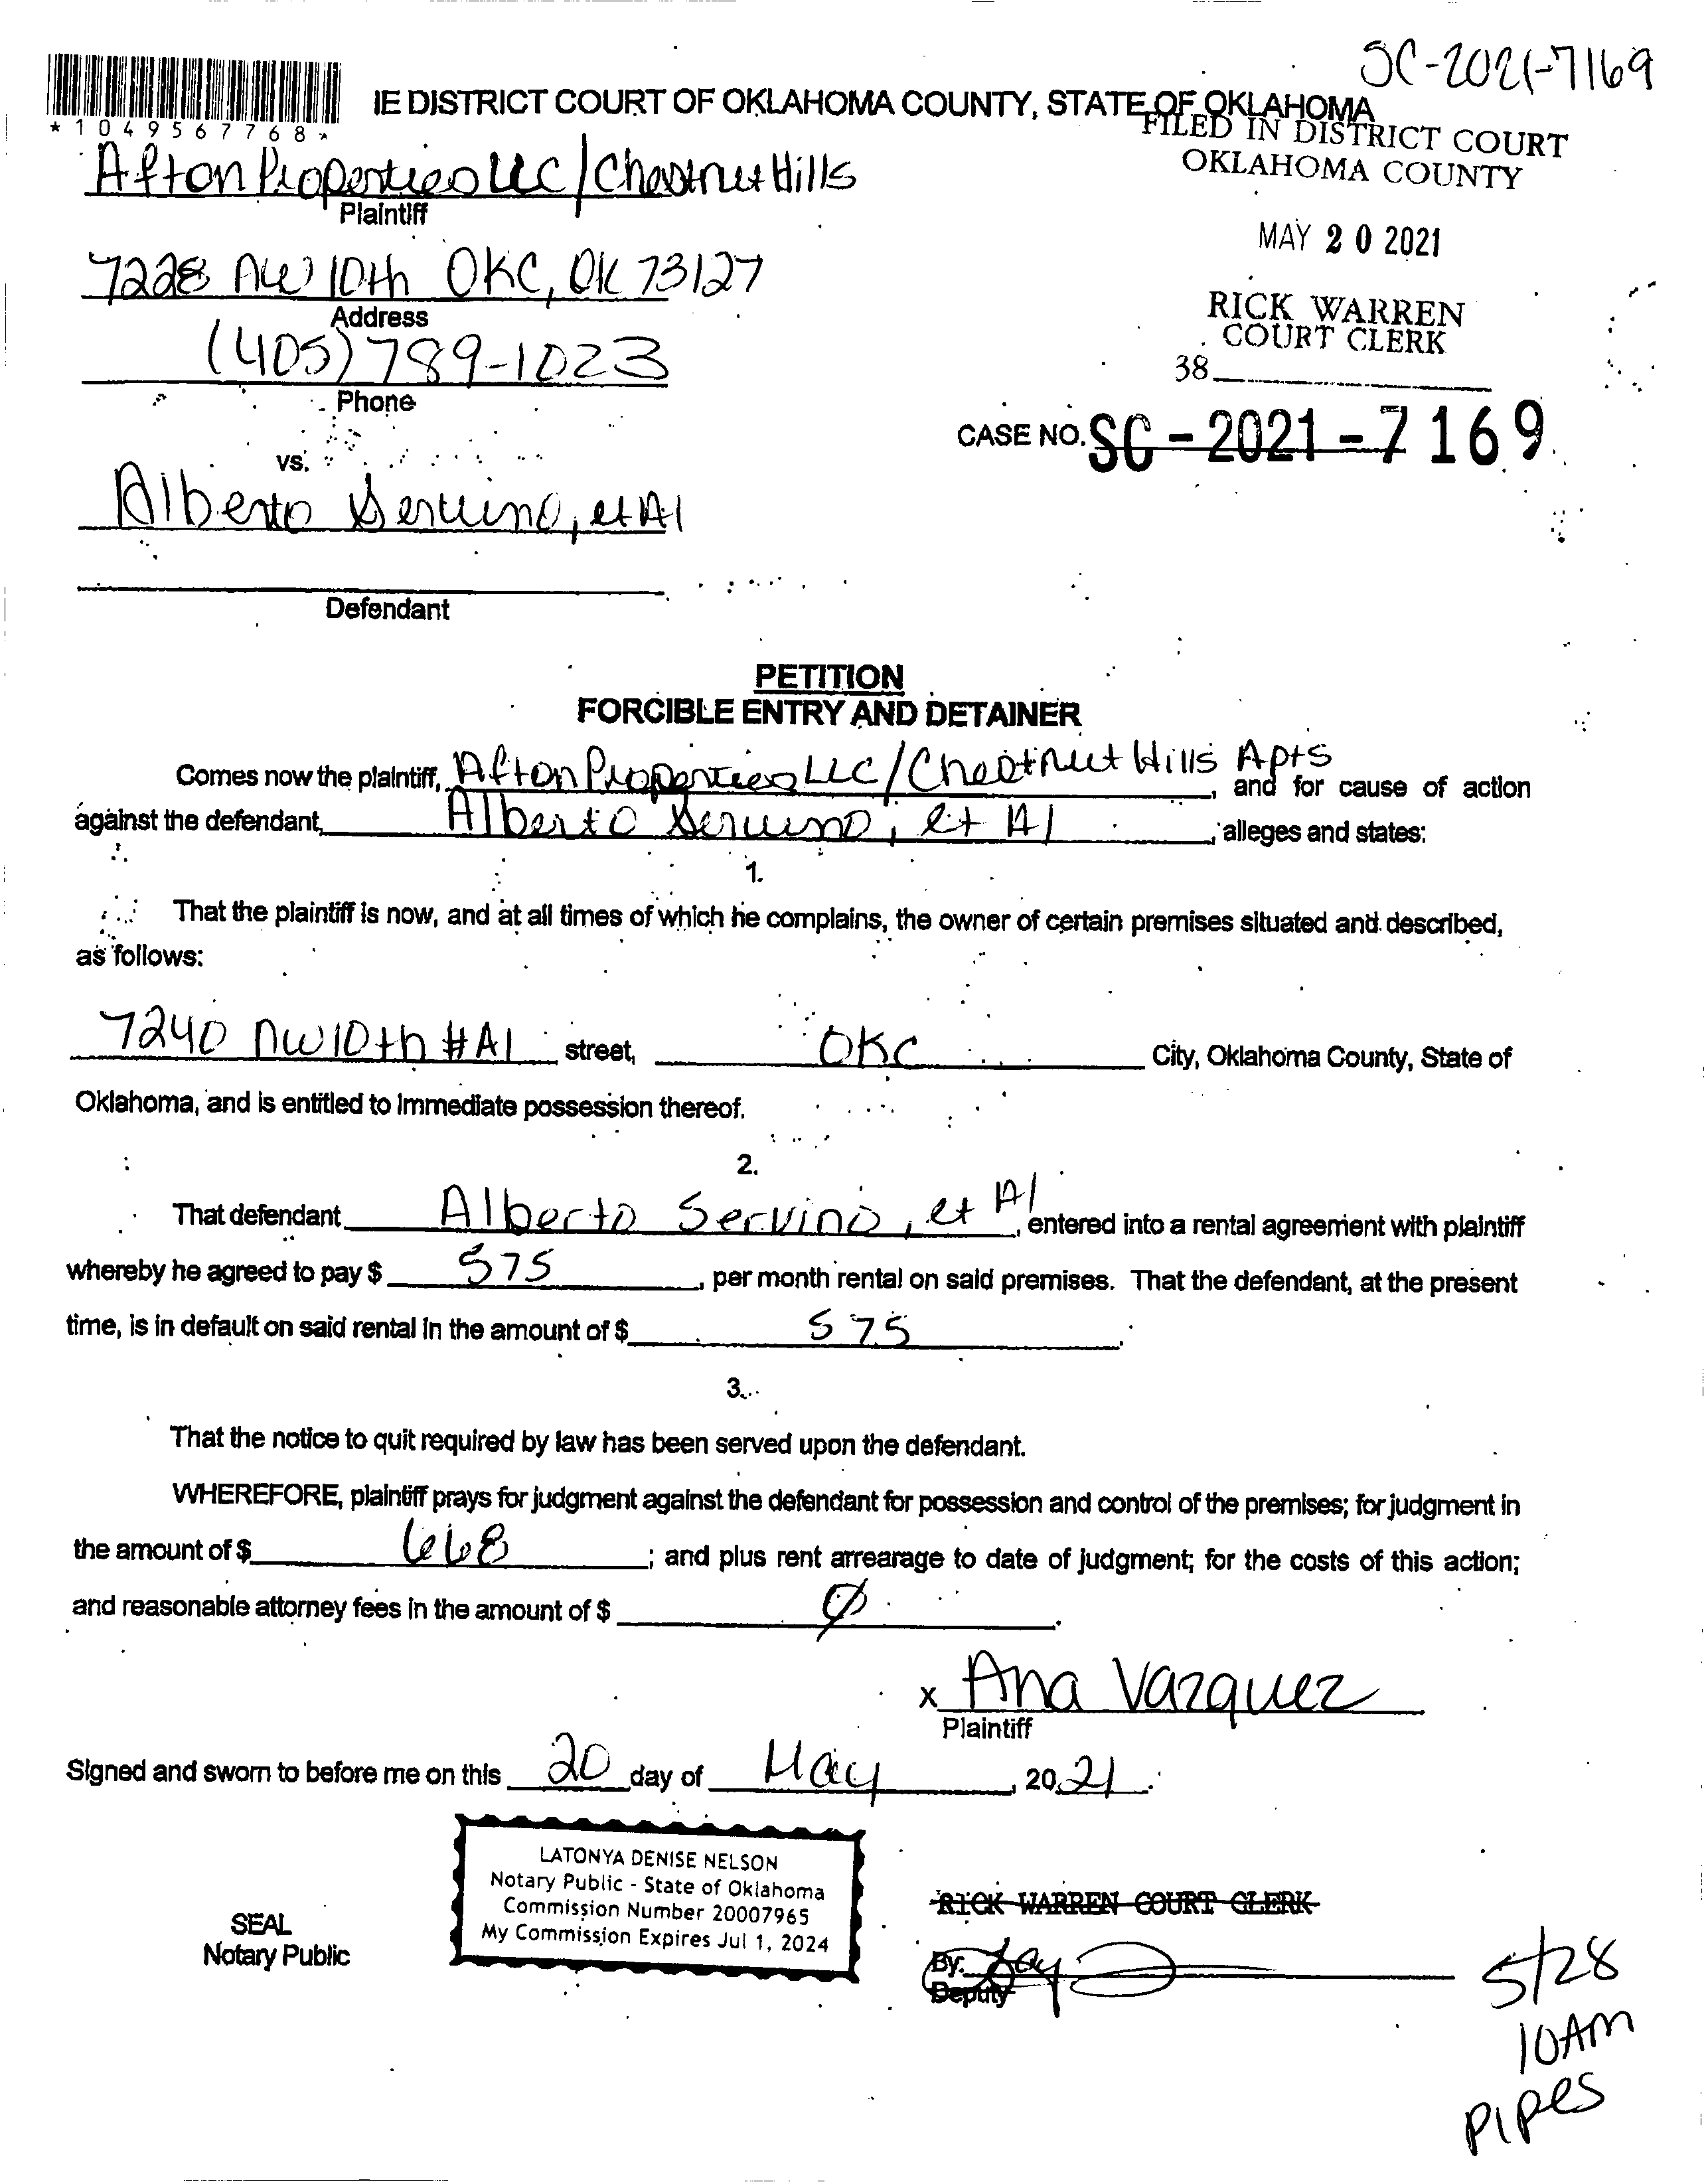 SC-2021-7169
IE DISTRICT COURT OF OKLAHOMA COUNTY, STATE OF OKLAHOMA
*1049567768*
FILED IN DISTRICT COURT
OKLAHOMA COUNTY
Afton Properties LLC/Chestnut Hills
Plaintiff
MAY 20 2021
7228 NW 10th OKC, OK 73127
Address
RICK WARREN
COURT CLERK
(405) 789-1023
38
Phone
CASE NO. SC-2021-7169
vs.
Alberto Servino, et Al
Defendant
PETITION
FORCIBLE ENTRY AND DETAINER
Comes now the plaintiff, Afton Properties LLC/Chestnut Hills Apts, and for cause of action
against the defendant, Alberto Servino, et Al, alleges and states:
1.
That the plaintiff is now, and at all times of which he complains, the owner of certain premises situated and described,
as follows:
7240 NW 10th #A1 street, OKC City, Oklahoma County, State of
Oklahoma, and is entitled to immediate possession thereof.
2.
That defendant Alberto Servino, et Al, entered into a rental agreement with plaintiff
whereby he agreed to pay $ 575, per month rental on said premises. That the defendant, at the present
time, is in default on said rental in the amount of $ 575.
3.
That the notice to quit required by law has been served upon the defendant.
WHEREFORE, plaintiff prays for judgment against the defendant for possession and control of the premises; for judgment in
the amount of $ 668; and plus rent arrearage to date of judgment; for the costs of this action;
and reasonable attorney fees in the amount of $ Ø.
x Ana Vazquez
Plaintiff
Signed and sworn to before me on this 20 day of May, 2021.
LATONYA DENISE NELSON
Notary Public - State of Oklahoma
Commission Number 20007965
My Commission Expires Jul 1, 2024
SEAL
Notary Public
RICK WARREN COURT CLERK
By:
Deputy
5/28
10AM
Pipes